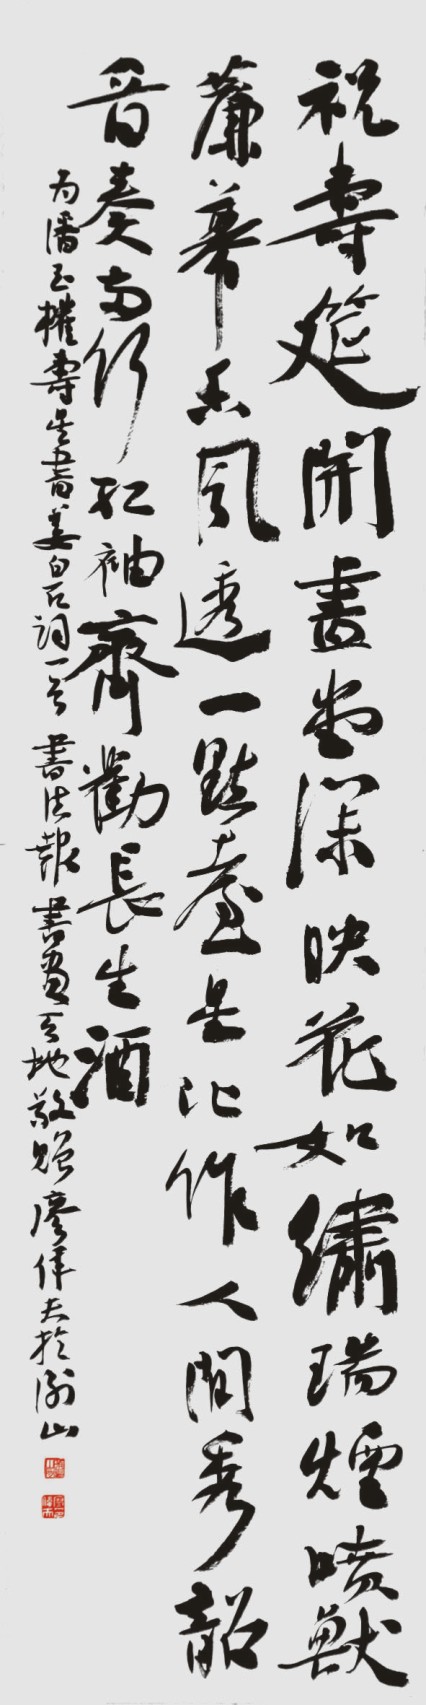 祝壽筵開畫堂深映花如繡瑞煙噴獸
簾幕香風透一點臺星化作人間秀韶
音奏兩行紅袖齊勸長生酒
為潘玉權壽星書姜白石詞一首 書法報書畫天地敬贈廖偉夫於山